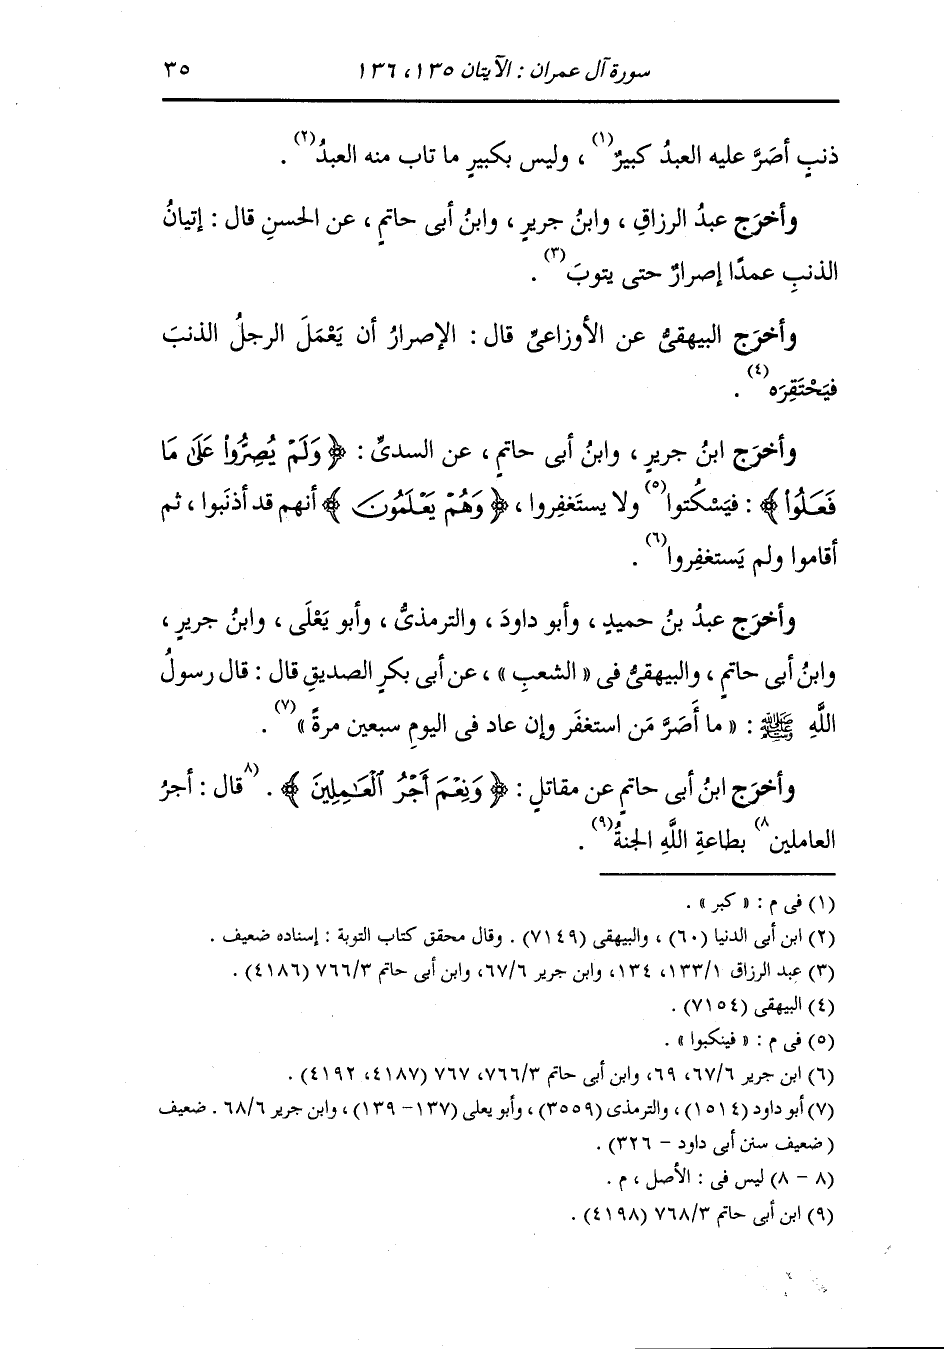 سورة آل عمران : الآيتان ١٣٥ ، ١٣٦ ٣٥
ذنبٍ أصَرَّ عليه العبدُ كبيرٌ(١) ، وليس بكبيرٍ ما تاب منه العبدُ(٢) .
وأخرَج عبدُ الرزاقِ ، وابنُ جريرٍ ، وابنُ أبى حاتمٍ ، عن الحسنِ قال : إتيانُ
الذنبِ عمدًا إصرارٌ حتى يتوبَ(٣) .
وأخرَج البيهقىُّ عن الأوزاعىِّ قال : الإصرارُ أن يَعْمَلَ الرجلُ الذنبَ
فيَحْتَقِرَه(٤) .
وأخرَج ابنُ جريرٍ ، وابنُ أبى حاتمٍ ، عن السدىِّ : ﴿ وَلَمْ يُصِرُّوا۟ عَلَىٰ مَا
فَعَلُوا۟ ﴾ : فيَسْكُتوا(٥) ولا يستَغفِروا ، ﴿ وَهُمْ يَعْلَمُونَ ﴾ أنهم قد أذنَبوا ، ثم
أقاموا ولم يَستغفِروا(٦) .
وأخرَج عبدُ بنُ حميدٍ ، وأبو داودَ ، والترمذىُّ ، وأبو يَعْلَى ، وابنُ جريرٍ ،
وابنُ أبى حاتمٍ ، والبيهقىُّ فى « الشعبِ » ، عن أبى بكرٍ الصديقِ قال : قال رسولُ
اللَّهِ ﷺ : « ما أَصَرَّ مَن استغفَر وإن عاد فى اليومِ سبعين مرةً »(٧) .
وأخرَج ابنُ أبى حاتمٍ عن مقاتلٍ : ﴿ وَنِعْمَ أَجْرُ ٱلْعَٰمِلِينَ ﴾ . (٨قال : أجرُ
العاملين٨) بطاعةِ اللَّهِ الجنةُ(٩) .
(١) فى م : « كبر » .
(٢) ابن أبى الدنيا (٦٠) ، والبيهقى (٧١٤٩) . وقال محقق كتاب التوبة : إسناده ضعيف .
(٣) عبد الرزاق ١٣٣/١، ١٣٤، وابن جرير ٦٧/٦، وابن أبى حاتم ٧٦٦/٣ (٤١٨٦) .
(٤) البيهقى (٧١٥٤) .
(٥) فى م : « فينكبوا » .
(٦) ابن جرير ٦٧/٦، ٦٩، وابن أبى حاتم ٧٦٦/٣، ٧٦٧ (٤١٨٧، ٤١٩٢) .
(٧) أبو داود (١٥١٤) ، والترمذى (٣٥٥٩) ، وأبو يعلى (١٣٧- ١٣٩) ، وابن جرير ٦٨/٦ . ضعيف
( ضعيف سنن أبى داود - ٣٢٦) .
(٨ - ٨) ليس فى : الأصل ، م .
(٩) ابن أبى حاتم ٧٦٨/٣ (٤١٩٨) .